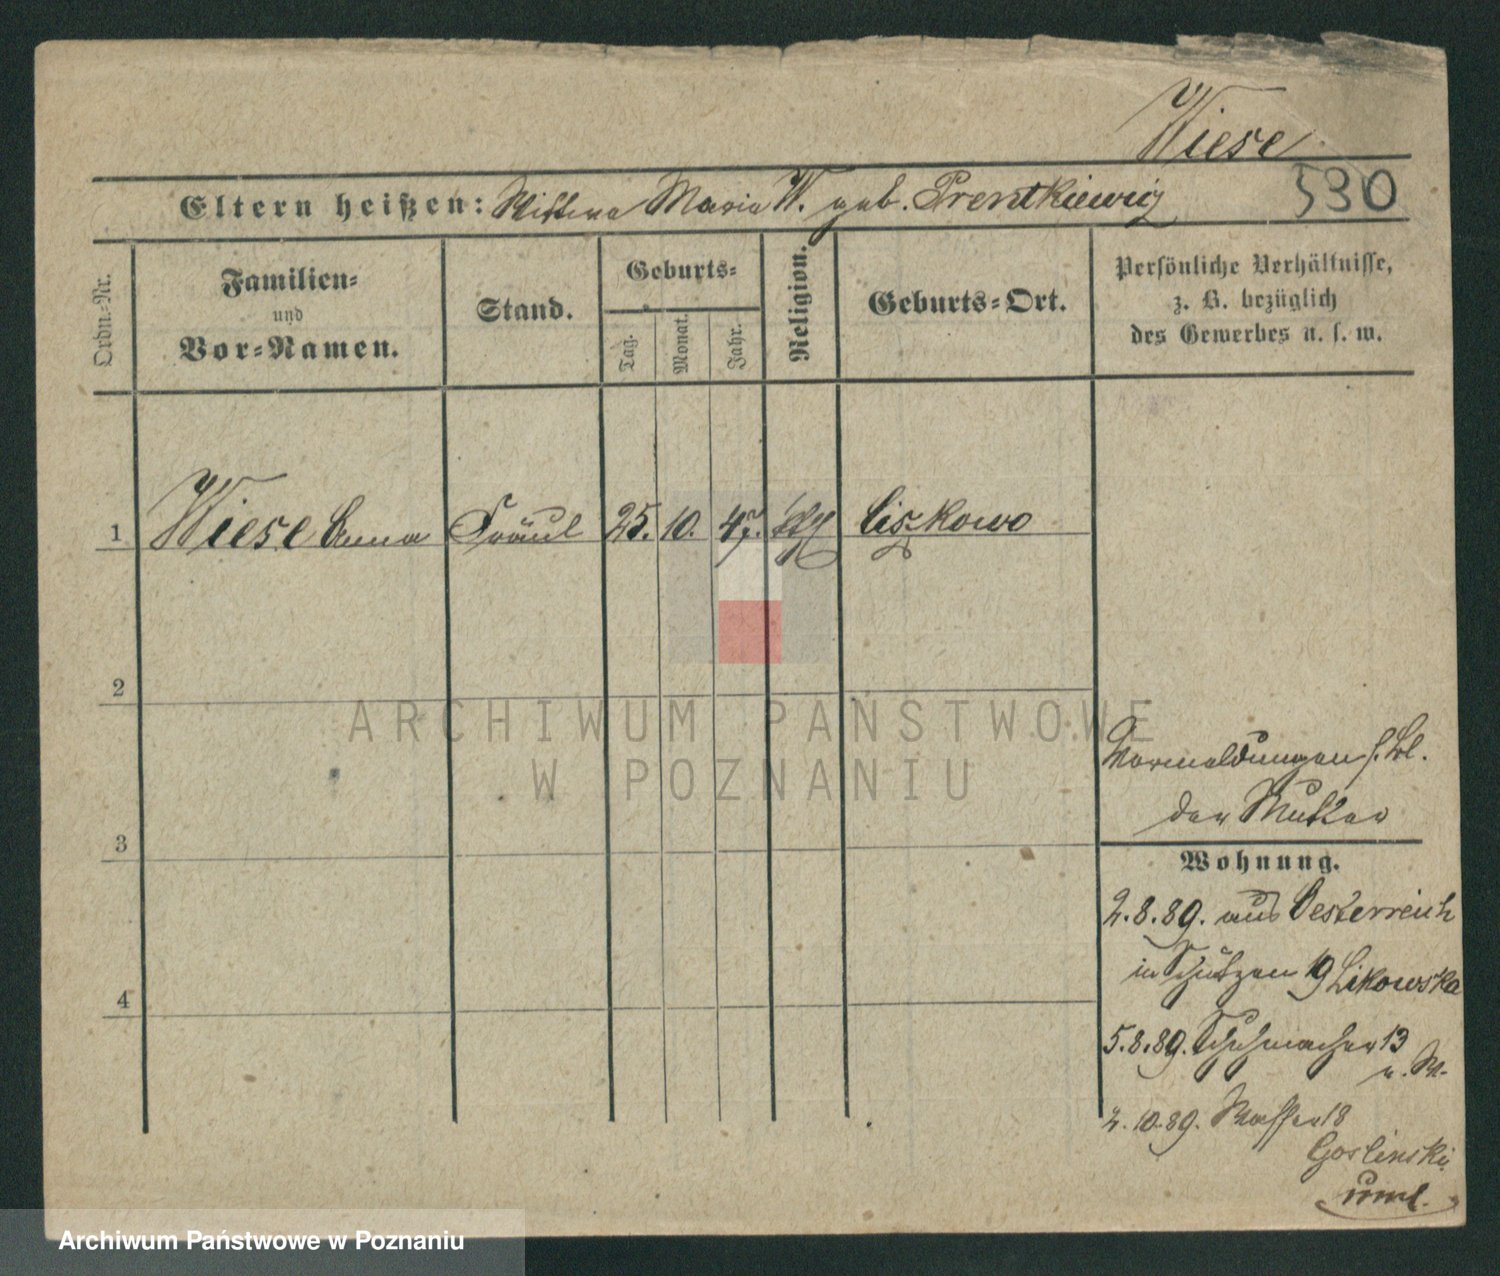 Wiese
Eltern heißen: Wittwe Maria W. geb. Prentkiewicz 530
Ordn.-Nr.
Familien-
und
Vor-Namen.
Stand.
Geburts-
Tag.
Monat.
Jahr.
Religion.
Geburts-Ort.
Persönliche Verhältnisse,
z. B. bezüglich
des Gewerbes u. s. w.
1 Wiese Anna Fräul 25. 10. 47. kth Liszkowo
2
3
4
Vormeldungen s. Bl.
der Mutter
Wohnung.
2.8.89. aus Oesterreich
in Schützen 19 Likowska
5.8.89. Schuhmacher 13
u. W.
2.10.89. Wasser 18
Goslinski
uml.
ARCHIWUM PAŃSTWOWE
W POZNANIU
Archiwum Państwowe w Poznaniu